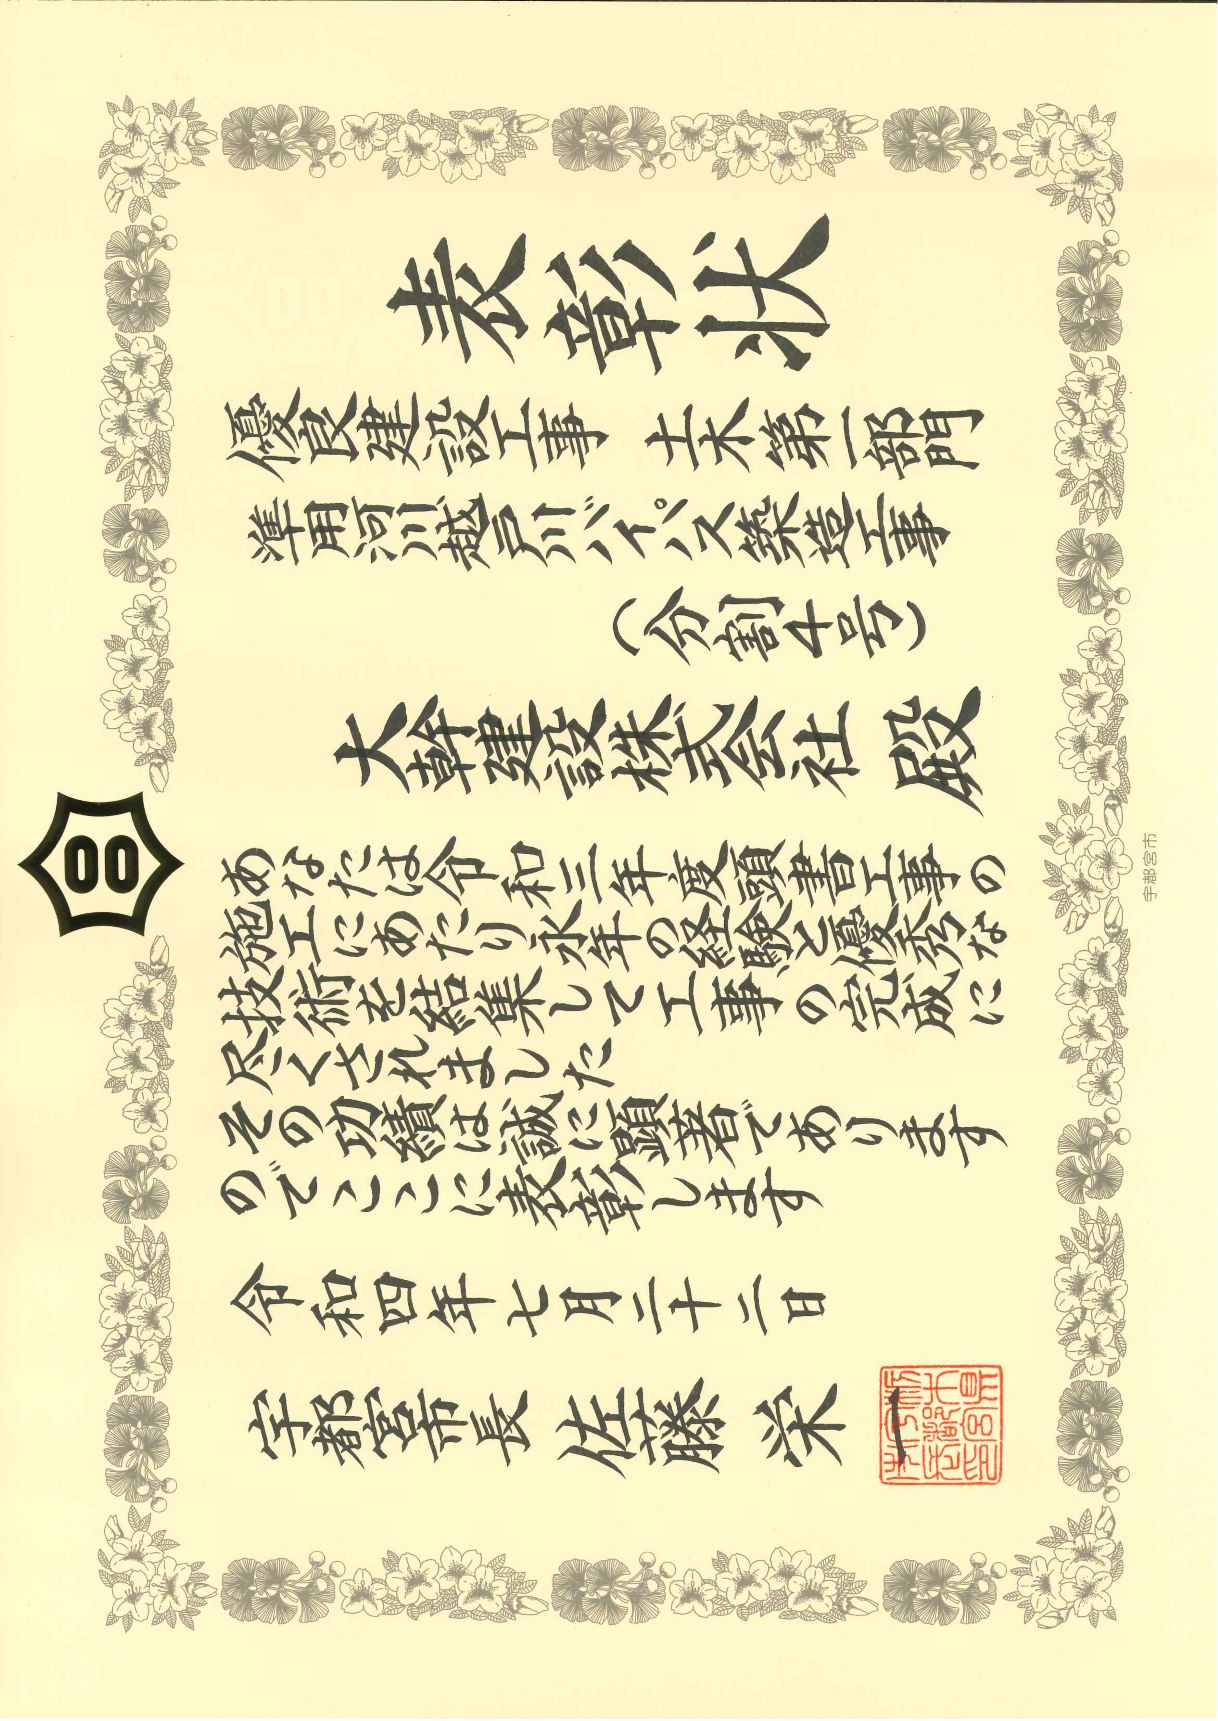 表彰状
優良建設工事 土木第一部門
準用河川越戸川バイパス築造工事
(分割4号)
大幹建設株式会社 殿
あなたは令和三年度頭書工事の
施工にあたり永年の経験と優秀な
技術を結集して工事の完成に
尽くされました
その功績は誠に顕著であります
のでここに表彰します
令和四年七月二十二日
宇都宮市長 佐藤 栄一
宇都宮市